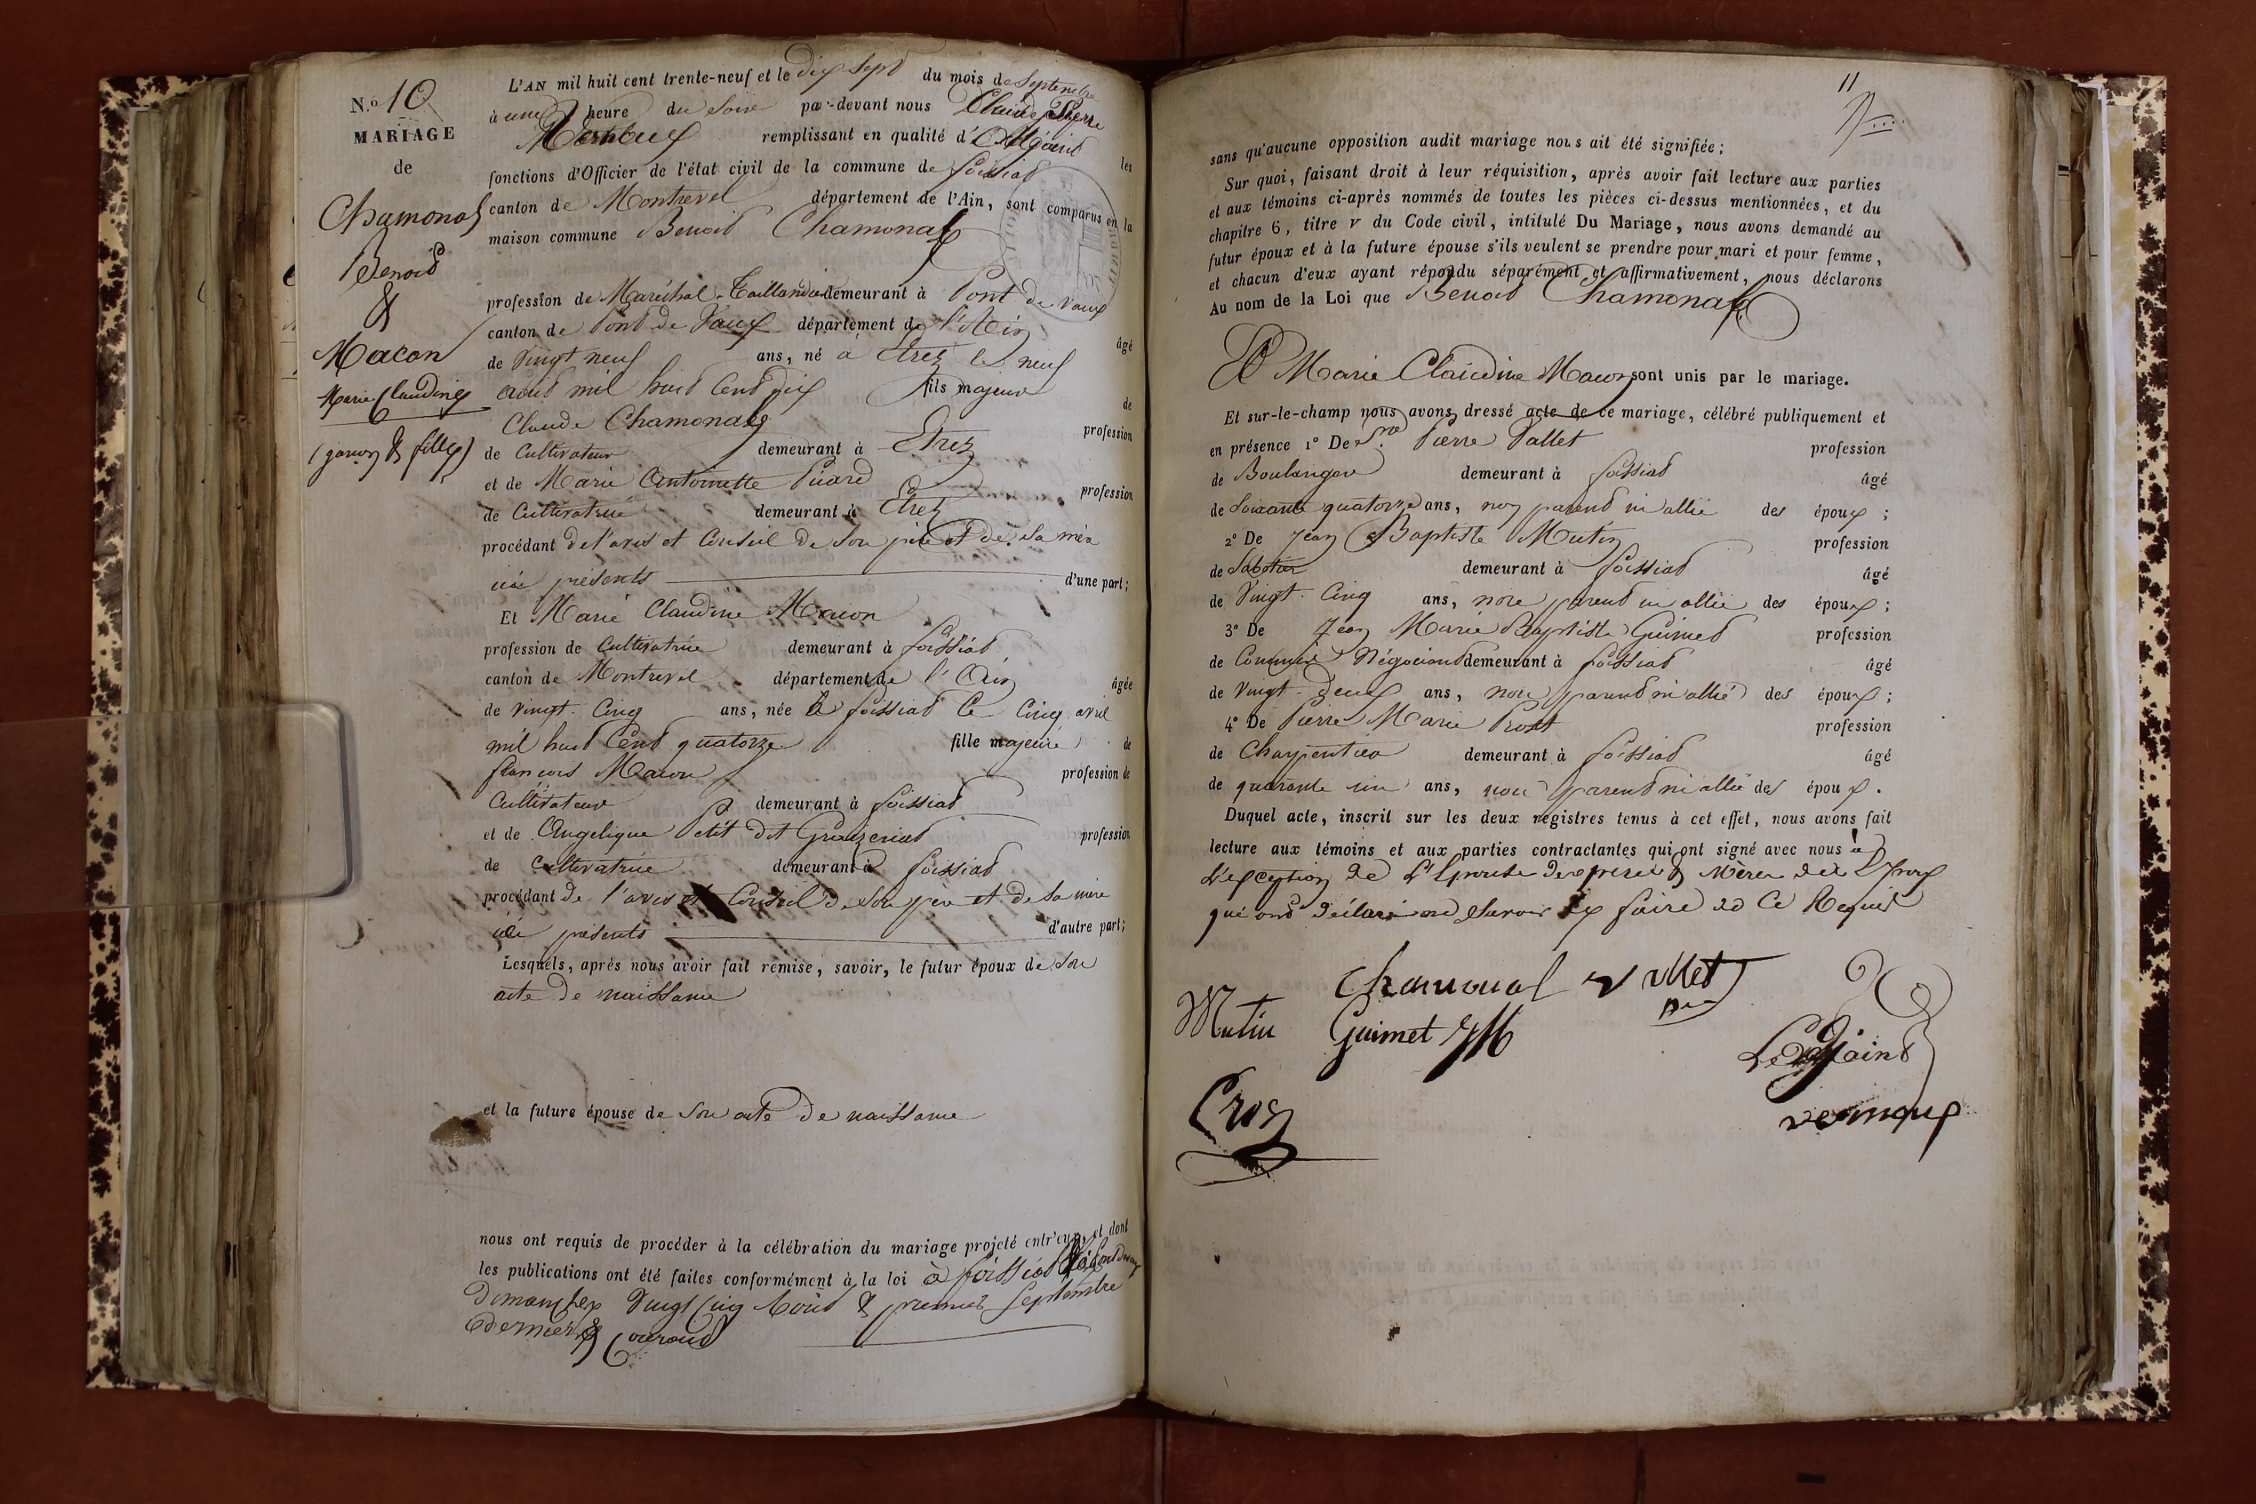 N.o 10
MARIAGE
de
Chamonal
Benoid
&
Macon
Marie Claudine
(garçon & fille)
L'AN mil huit cent trente-neuf et le dix sept du mois de Septembre
à une heure du Soir par-devant nous Claude Pierre
remplissant en qualité d'Adjoind les
fonctions d'Officier de l'état civil de la commune de foissiat
canton de Montrevel département de l'Ain, sont comparus en la
maison commune Benoid Chamonal
profession de Maréchal-Taillandier demeurant à Pont de Vaux
canton de Pont de Vaux département de l'Ain âgé
de Vingt neuf ans, né à Etrez le neuf
aoud mil huid Cend dix fils majeur de
Claude Chamonal profession
de Cultivateur demeurant à Etrez
et de Marie Antoinette profession
de Cultivatrice demeurant à Etrez
procédant de l'avis et Conseil de Son père et de Sa mère
ici présents d'une part;
Et Marie Claudine Macon
profession de Cultivatrice demeurant à foissiad
canton de Montrevel département de l'Ain âgée
de vingt-Cinq ans, née à foissiad le Cinq avril
mil huid Cend quatorze fille majeure de
françois Macon profession de
Cultivateur demeurant à foissiad
et de Angelique Petit dit profession
de Cultivatrice demeurant à foissiad
procédant de l'avis et Conseil de Son père et de Sa mère
ici présents d'autre part;
Lesquels, après nous avoir fait remise, savoir, le futur époux de Son
acte de naissance
et la future épouse de Son acte de naissance
nous ont requis de procéder à la célébration du mariage projeté entr'eux, et dont
les publications ont été faites conformément à la loi à foissiad
Dimanches Vingt Cinq Aoud & premier Septembre
dernier & Courand
11
sans qu'aucune opposition audit mariage nous ait été signifiée;
Sur quoi, faisant droit à leur réquisition, après avoir fait lecture aux parties
et aux témoins ci-après nommés de toutes les pièces ci-dessus mentionnées, et du
chapitre 6, titre v du Code civil, intitulé Du Mariage, nous avons demandé au
futur époux et à la future épouse s'ils veulent se prendre pour mari et pour femme,
et chacun d'eux ayant répondu séparément et affirmativement, nous déclarons
Au nom de la Loi que Benoid Chamonal
Et Marie Claudine Macon sont unis par le mariage.
Et sur-le-champ nous avons dressé acte de ce mariage, célébré publiquement et
en présence 1° De Sre Pierre Vallet profession
de Boulanger demeurant à foissiad âgé
de Soixante quatorze ans, non parend ni allié des époux;
2° De Jean Baptiste Mutin profession
de Sabotier demeurant à foissiad âgé
de Vingt-Cinq ans, non parend ni allié des époux;
3° De Jean Marie Baptiste Guimet profession
de Commis Négociand demeurant à foissiad âgé
de Vingt-Deux ans, non parend ni allié des époux;
4° De Pierre Marie Prost profession
de Charpentier demeurant à foissiad âgé
de quarante un ans, non parend ni allié des époux.
Duquel acte, inscrit sur les deux registres tenus à cet effet, nous avons fait
lecture aux témoins et aux parties contractantes qui ont signé avec nous à
L'exception de L'Epouse Des pères & Mères des Epoux
qui ond Déclaré ne Savoir Le faire de Ce Requis
Chamonal Vallet
Mutin Guimet JM
L'adjoind